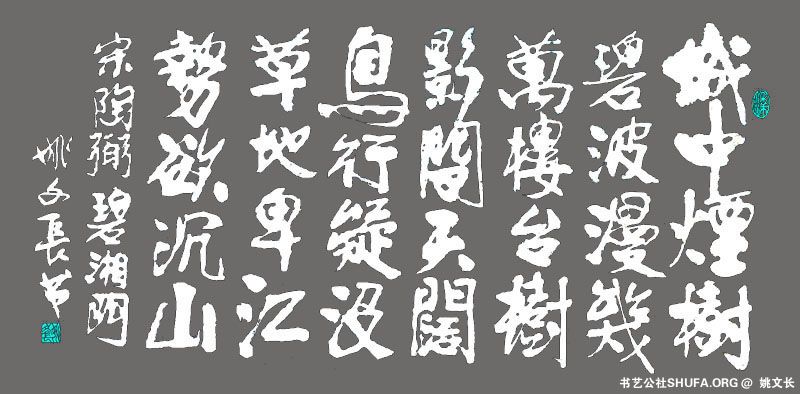 城中煙樹
碧波漫幾
萬樓台樹
影間天闊
鳥行疑没
草地卑江
勢欲沉山
宋陶弼碧湘門
姚文長書
书艺公社SHUFA.ORG @ 姚文长